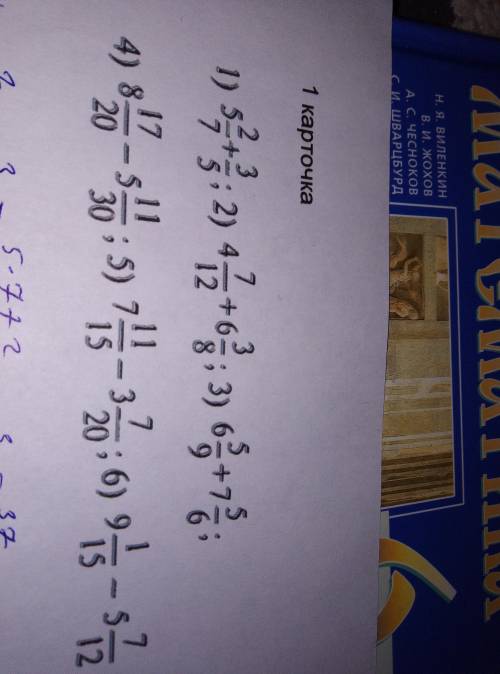 Н. Я. ВИЛЕНКИН
В. И. ЖОХОВ
А. С. ЧЕСНОКОВ
С. И. ШВАРЦБУРД
1 карточка
1) 5 2/7 + 3/5; 2) 4 7/12 + 6 3/8; 3) 6 5/9 + 7 5/6;
4) 8 17/20 − 5 11/30; 5) 7 11/15 − 3 7/20; 6) 9 1/15 − 5 7/12
5·7+2
37